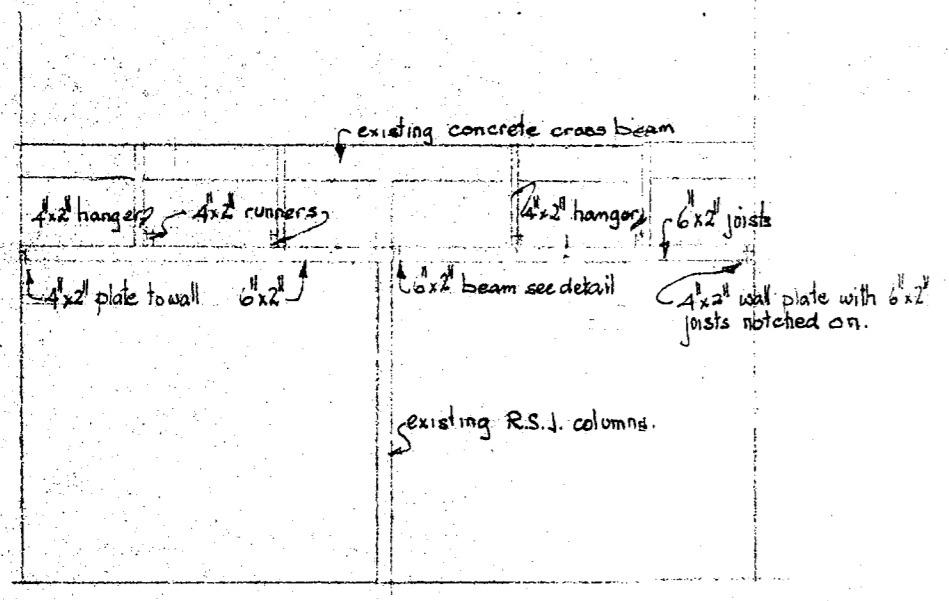 existing concrete cross beam
4"x2" hanger
4"x2" runners
4"x2" hanger
6"x2" joists
4"x2" plate to wall
6"x2"
6"x2" beam see detail
4"x2" wall plate with 6"x2"
joists notched on.
existing R.S.J. columns.